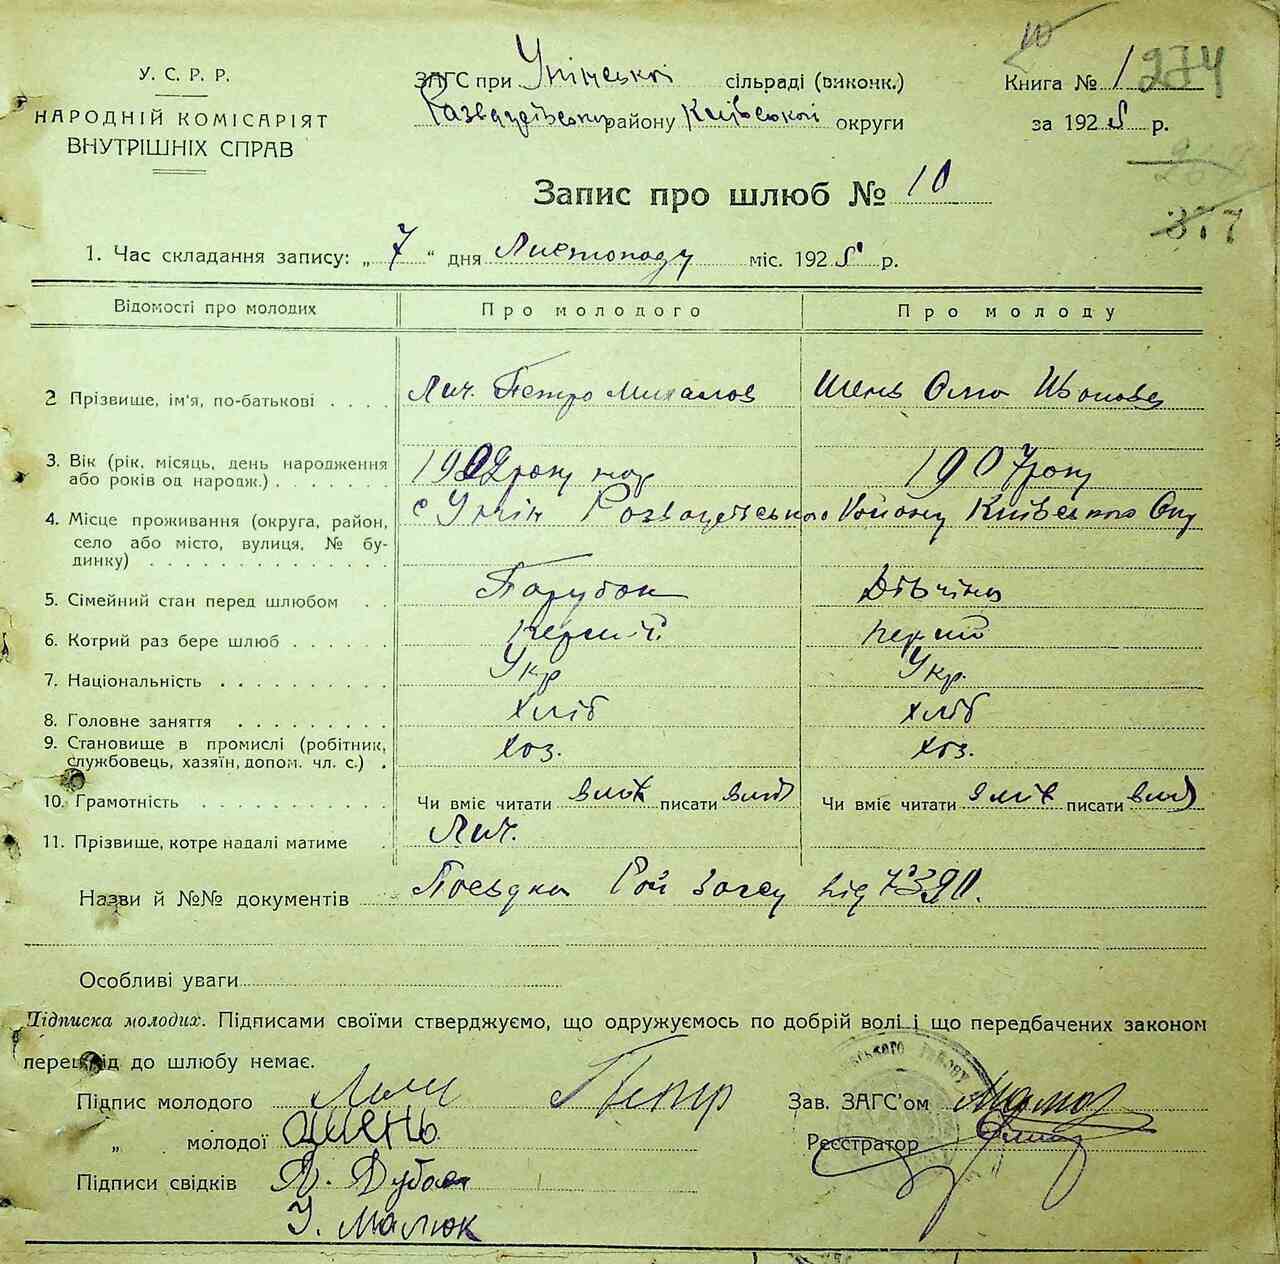 У. С. Р. Р.
НАРОДНІЙ КОМІСАРІЯТ
ВНУТРІШНІХ СПРАВ
ЗАГС при сільраді (виконк.)
району Київської округи
Книга № 1 274
за 1925 р.
377
Запис про шлюб № 10
1. Час складання запису: „ 7 “ дня Листопаду міс. 1925 р.
Відомості про молодих Про молодого Про молоду
2 Прізвище, ім'я, по-батькові . . . . Лич. Петро Михайлов Шень
3. Вік (рік, місяць, день народження 1902 року 1907 року
або років од народж.) . . . . . . .
4. Місце проживання (округа, район, с Розваджівського Району Київського Окр
село або місто, вулиця, № бу-
динку) . . . . . . . . . . . . . .
5. Сімейний стан перед шлюбом . . Парубок Дівчина
6. Котрий раз бере шлюб . . . . . . Перший Перший
7. Національність . . . . . . . . . . Укр Укр.
8. Головне заняття . . . . . . . . . Хліб Хліб
9. Становище в промислі (робітник, Хоз. Хоз.
службовець, хазяїн, допом. чл. с.) .
10. Грамотність . . . . . . . . . . . Чи вміє читати вміє писати вміє Чи вміє читати вміє писати вміє
11. Прізвище, котре надалі матиме . Лич.
Назви й №№ документів Загсу від 7390.
Особливі уваги
Підписка молодих. Підписами своїми стверджуємо, що одружуємось по добрій волі і що передбачених законом
перешкід до шлюбу немає.
Підпис молодого Петр Зав. ЗАГС'ом
„ молодої Шень Реєстратор
Підписи свідків
У. Малюк